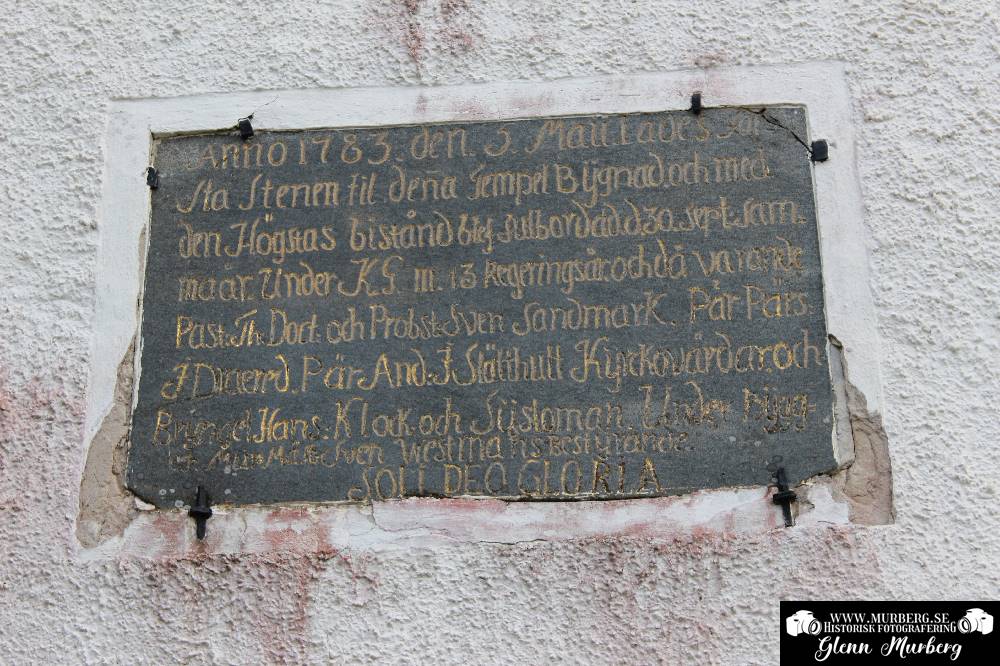 Anno 1783. den. 5 Maii Lades För
sta Stenen til. deña Tempel Bÿgnad. och med.
den Högstas bistånd blef fulbordad d 30 sept. sam-
ma år. Under K. G. m. 13 Regeringsår. och då varande
Past. Th. Doct. och Probst. Sven Sandmark. Pär Pärs.
i Diaered. Pär And. i Slätthult Kÿrckovärdar. och
Bryngel Hans. Klock. och Süsloman. Under Bÿgg-
Mur. M. Sven Westmans Bestÿrande.
SOLI DEO GLORIA
WWW.MURBERG.SE
Historisk fotografering
Glenn Murberg